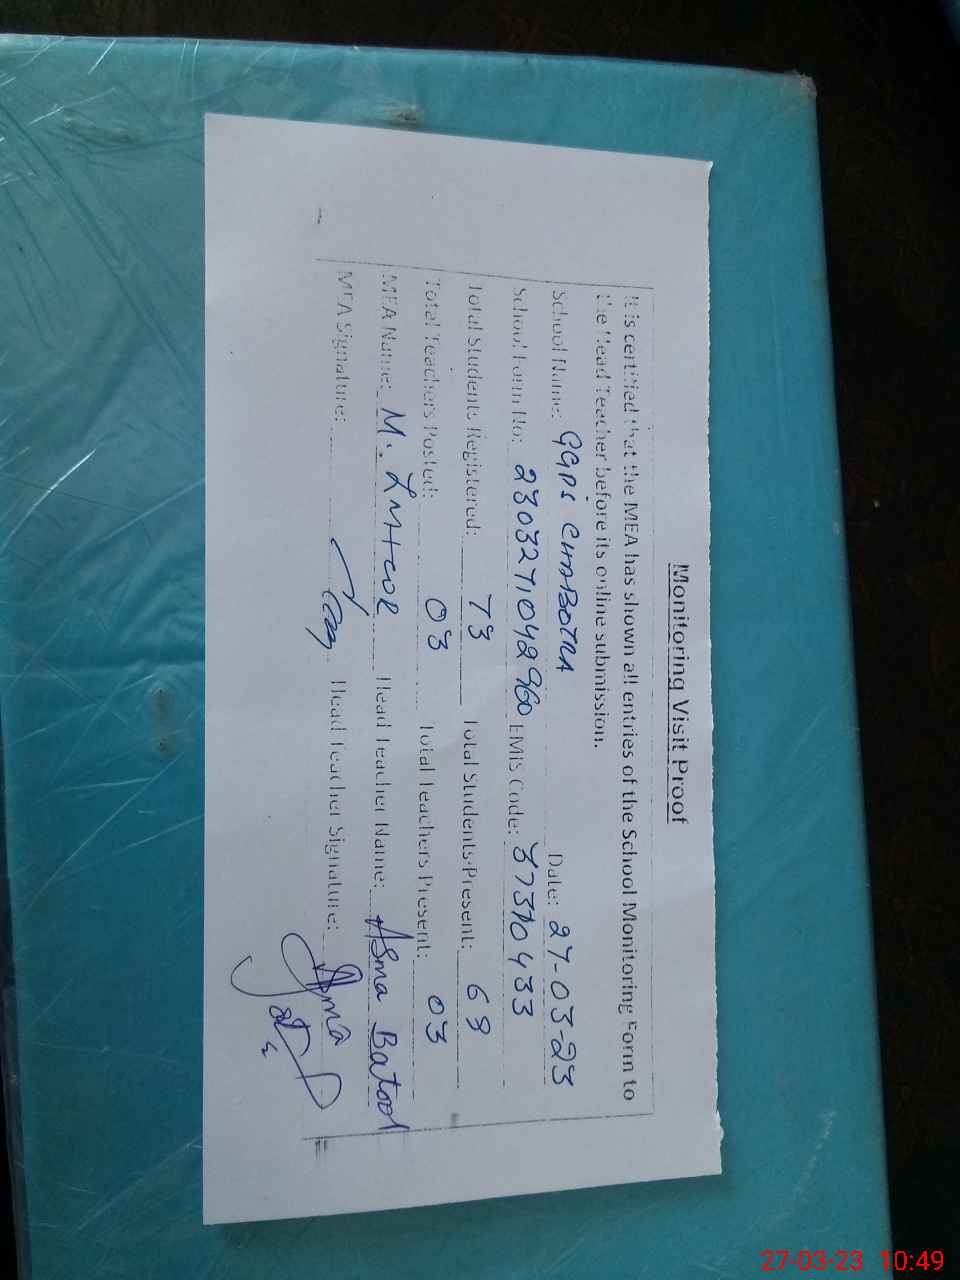 Monitoring Visit Proof
It is certified that the MEA has shown all entries of the School Monitoring Form to
the Head Teacher before its online submission.
School Name: GGPS Date: 27-03-23
School Form No: EMIS Code: 37310433
Total Students Registered: 73 Total Students Present: 69
Total Teachers Posted: 03 Total Teachers Present: 03
MEA Name: M. Head Teacher Name: Asma Batool
MEA Signature: Head Teacher Signature: Asma
27-03-23 10:49